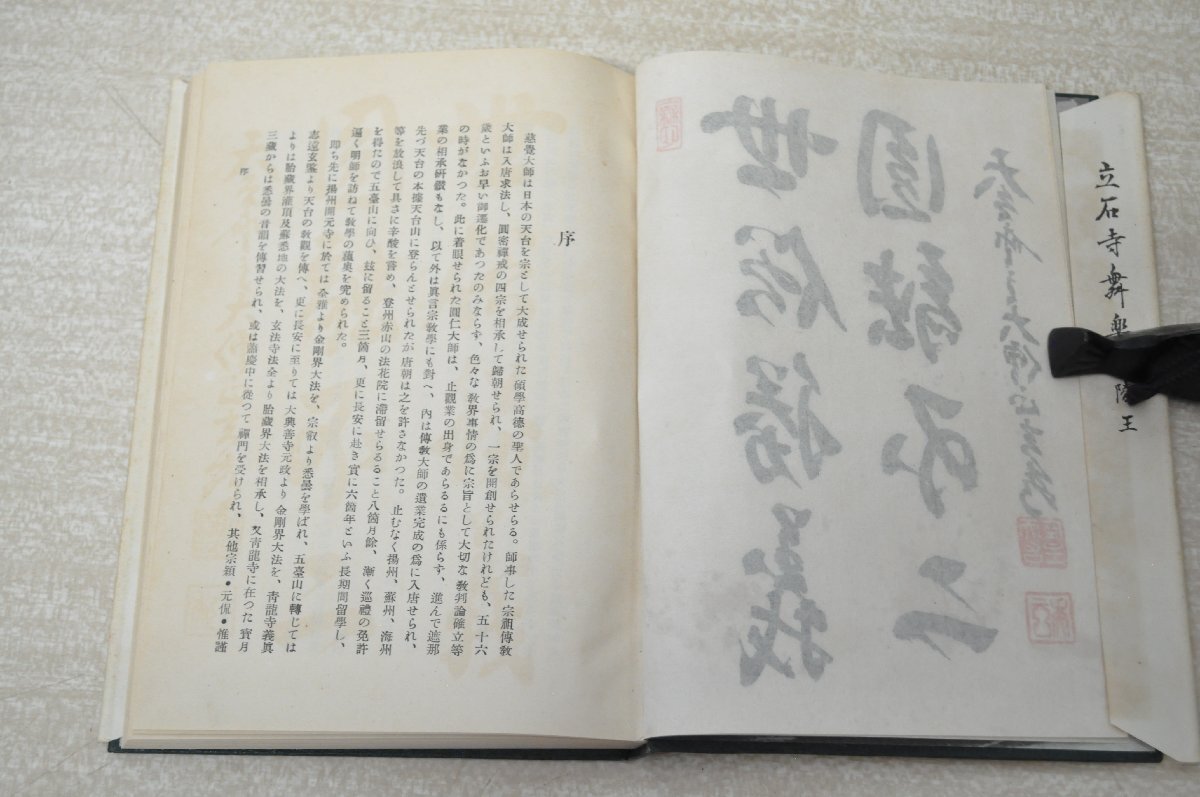 立石寺舞樂 陵王
圓融不二
世俗勝義
序
慈覺大師は日本の天台を宗として大成せられた碩學高德の聖人であらせらる。師事した宗祖傳敎
大師は入唐求法し、圓密禪戒の四宗を相承して歸朝せられ、一宗を開創せられたけれども、五十六
歲といふお早い御遷化であつたのみならず、色々な敎界事情の爲に宗旨として大切な敎判論確立等
の時がなかつた。此に着眼せられた圓仁大師は、止觀業の出身であらるるにも係らず、進んで遮那
業の相承硏鑽もなし、以て外は眞言宗敎學にも對へ、內は傳敎大師の遺業完成の爲に入唐せられ、
先づ天台の本據天台山に登らんとせられたが唐朝は之を許さなかつた。止むなく揚州、蘇州、海州
等を放浪して具さに辛酸を嘗め、登州赤山の法花院に滯留せらるること八箇月餘、漸く巡禮の免許
を得たので五臺山に向ひ、玆に留ること三箇月、更に長安に赴き實に六箇年といふ長期間留學し、
遍く明師を訪ねて敎學の蘊奧を究められた。
卽ち先に揚州開元寺に於ては全雅より金剛界大法を、宗叡より悉曇を學ばれ、五臺山に轉じては
志遠玄鑒より天台の敎觀を傳へ、更に長安に至りては大興善寺元政より金剛界大法を、靑龍寺義眞
よりは胎藏界灌頂及蘇悉地の大法を、玄法寺法全より胎藏界大法を相承し、又靑龍寺に在つた寳月
三藏からは悉曇の音韻を傳習せられ、或は蕭慶中に從つて禪門を受けられ、其他宗穎・元侃・惟謹
序